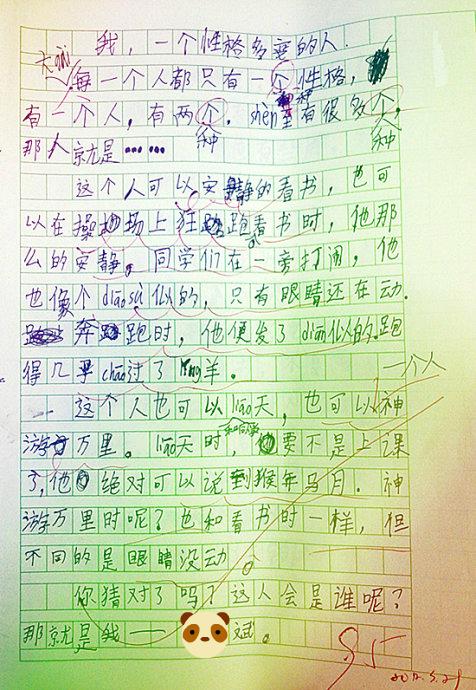 我，一个性格多变的人
大gài
每一个人都只有一个性格，
有一个人，有两个．shèn至有很多个，
种 种
那人就是……
这个人可以安静的看书，也可
以在操场上狂跑看书时，他那
么的安静。同学们在一旁打闹，他
也像个diāosù似的，只有眼睛还在动．
奔跑时，他便发了diān似的．跑
得几乎chāo过了羊．
一个人
这个人也可以liáo天，也可以神
游万里。liáo天时，要不是上课
了，他绝对可以说到猴年马月．神
游万里时呢？也和看书时一样，但
不同的是眼睛没动。
你猜对了吗？这人会是谁呢？
那就是我——斌。